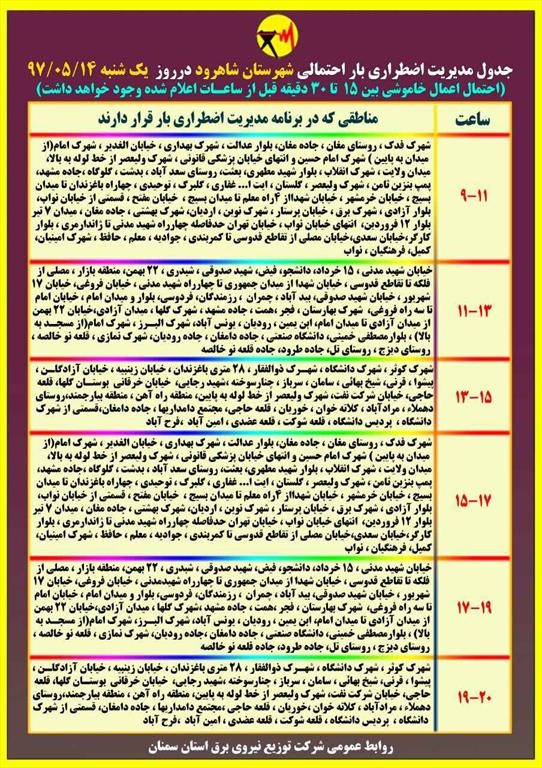 جدول مدیریت اضطراری بار احتمالی شهرستان شاهرود درروز یک شنبه ۹۷/۰۵/۱۴
(احتمال اعمال خاموشی بین ۱۵ تا ۳۰ دقیقه قبل از ساعات اعلام شده وجود خواهد داشت)
ساعت
مناطقی که در برنامه مدیریت اضطراری بار قرار دارند
۹-۱۱
شهرک فدک ، روستای مغان ، جاده مغان، بلوار عدالت ، شهرک بهداری ، خیابان الغدیر ، شهرک امام(از
میدان به پایین ) شهرک امام حسین و انتهای خیابان پزشکی قانونی ، شهرک ولیعصر از خط لوله به بالا،
میدان ولایت ، شهرک انقلاب ، بلوار شهید مطهری، بعثت، روستای سعد آباد ، بدشت ، گلوگاه ،جاده مشهد،
پمپ بنزین ثامن ، شهرک ولیعصر ، گلستان ، آیت ا... غفاری ، گلبرک ، توحیدی ، چهارراه باغزندان تا میدان
بسیج ، خیابان خرمشهر ، خیابان شهدااز ۴راه معلم تا میدان بسیج ، خیابان مفتح ، قسمتی از خیابان نواب،
بلوار آزادی ، شهرک برق ، خیابان پرستار ، شهرک نوین ، اردیان، شهرک بهشتی ، جاده مغان ، میدان ۷ تیر
بلوار ۱۲ فروردین، انتهای خیابان نواب ، خیابان تهران حدفاصله چهارراه شهید مدنی تا ژاندارمری ، بلوار
کارگر،خیابان سعدی،خیابان مصلی از تقاطع قدوسی تا کمربندی ، جوادیه ، معلم ، حافظ ، شهرک امینیان،
کمیل، فرهنگیان ، نواب
۱۱-۱۳
خیابان شهید مدنی ، ۱۵ خرداد، دانشجو، فیض، شهید صدوقی ، شیدری ، ۲۲ بهمن، منطقه بازار ، مصلی از
فلکه تا تقاطع قدوسی ، خیابان شهدا از میدان جمهوری تا چهارراه شهید مدنی ، خیابان فروغی، خیابان ۱۷
شهریور ، خیابان شهید صدوقی، بید آباد ، چمران ، رزمندگان، فردوسی، بلوار و میدان امام ، خیابان امام
تا سه راه فروغی، شهرک بهارستان ، فجر ،همت ، جاده مشهد، شهرک گلها ، میدان آزادی،خیابان ۲۲ بهمن
از میدان آزادی تا میدان امام، ابن یمین ، رودیان ، یونس آباد، شهرک البرز ، شهرک امام(از مسجد به
بالا) ، بلوارمصطفی خمینی، دانشگاه صنعتی ، جاده دامغان ، جاده رودیان، شهرک نمازی ، قلعه نو خالصه ،
روستای دیزج ، روستای تل، جاده طرود، جاده قلعه نو خالصه
۱۳-۱۵
شهرک کوثر ، شهرک دانشگاه ، شهرک ذوالفقار ، ۲۸ متری باغزندان ، خیابان زینبیه ، خیابان آزادگان ،
پیشوا ، قرنی، شیخ بهائی ، سامان ، سرباز ، چنارسوخته ،شهید رجایی، خیابان خرقانی بوستان گلها، قلعه
حاجی، خیابان شرکت نفت، شهرک ولیعصر از خط لوله به پایین، منطقه راه آهن ، منطقه بیارجمند،روستای
دهملاء ، مرادآباد ، کلاته خوان ، خوریان ، قلعه حاجی، مجتمع دامداریها ، جاده دامغان،قسمتی از شهرک
دانشگاه ، پردیس دانشگاه ، قلعه شوکت ، قلعه عضدی ، امین آباد ،فرح آباد
۱۵-۱۷
شهرک فدک ، روستای مغان ، جاده مغان، بلوار عدالت ، شهرک بهداری ، خیابان الغدیر ، شهرک امام(از
میدان به پایین ) شهرک امام حسین و انتهای خیابان پزشکی قانونی ، شهرک ولیعصر از خط لوله به بالا،
میدان ولایت ، شهرک انقلاب ، بلوار شهید مطهری، بعثت، روستای سعد آباد ، بدشت ، گلوگاه ،جاده مشهد،
پمپ بنزین ثامن ، شهرک ولیعصر ، گلستان ، آیت ا... غفاری ، گلبرک ، توحیدی ، چهارراه باغزندان تا میدان
بسیج ، خیابان خرمشهر ، خیابان شهدااز ۴راه معلم تا میدان بسیج ، خیابان مفتح ، قسمتی از خیابان نواب،
بلوار آزادی ، شهرک برق ، خیابان پرستار ، شهرک نوین ، اردیان، شهرک بهشتی ، جاده مغان ، میدان ۷ تیر
بلوار ۱۲ فروردین، انتهای خیابان نواب ، خیابان تهران حدفاصله چهارراه شهید مدنی تا ژاندارمری ، بلوار
کارگر،خیابان سعدی،خیابان مصلی از تقاطع قدوسی تا کمربندی ، جوادیه ، معلم ، حافظ ، شهرک امینیان،
کمیل، فرهنگیان ، نواب
۱۷-۱۹
خیابان شهید مدنی ، ۱۵ خرداد، دانشجو، فیض، شهید صدوقی ، شیدری ، ۲۲ بهمن، منطقه بازار ، مصلی از
فلکه تا تقاطع قدوسی ، خیابان شهدا از میدان جمهوری تا چهارراه شهیدمدنی ، خیابان فروغی، خیابان ۱۷
شهریور ، خیابان شهید صدوقی، بید آباد ، چمران ، رزمندگان، فردوسی، بلوار و میدان امام ، خیابان امام
تا سه راه فروغی، شهرک بهارستان ، فجر ،همت ، جاده مشهد، شهرک گلها ، میدان آزادی،خیابان ۲۲ بهمن
از میدان آزادی تا میدان امام، ابن یمین ، رودیان ، یونس آباد، شهرک البرز ، شهرک امام(از مسجد به
بالا) ، بلوارمصطفی خمینی، دانشگاه صنعتی ، جاده دامغان ، جاده رودیان، شهرک نمازی ، قلعه نو خالصه ،
روستای دیزج ، روستای تل، جاده طرود، جاده قلعه نو خالصه
۱۹-۲۰
شهرک کوثر ، شهرک دانشگاه ، شهرک ذوالفقار ، ۲۸ متری باغزندان ، خیابان زینبیه ، خیابان آزادگان ،
پیشوا ، قرنی، شیخ بهائی ، سامان ، سرباز ، چنارسوخته ،شهید رجایی، خیابان خرقانی بوستان گلها، قلعه
حاجی، خیابان شرکت نفت، شهرک ولیعصر از خط لوله به پایین، منطقه راه آهن ، منطقه بیارجمند،روستای
دهملاء ، مرادآباد ، کلاته خوان ، خوریان ، قلعه حاجی، مجتمع دامداریها ، جاده دامغان، قسمتی از شهرک
دانشگاه ، پردیس دانشگاه ، قلعه شوکت ، قلعه عضدی ، امین آباد ،فرح آباد
روابط عمومی شرکت توزیع نیروی برق استان سمنان